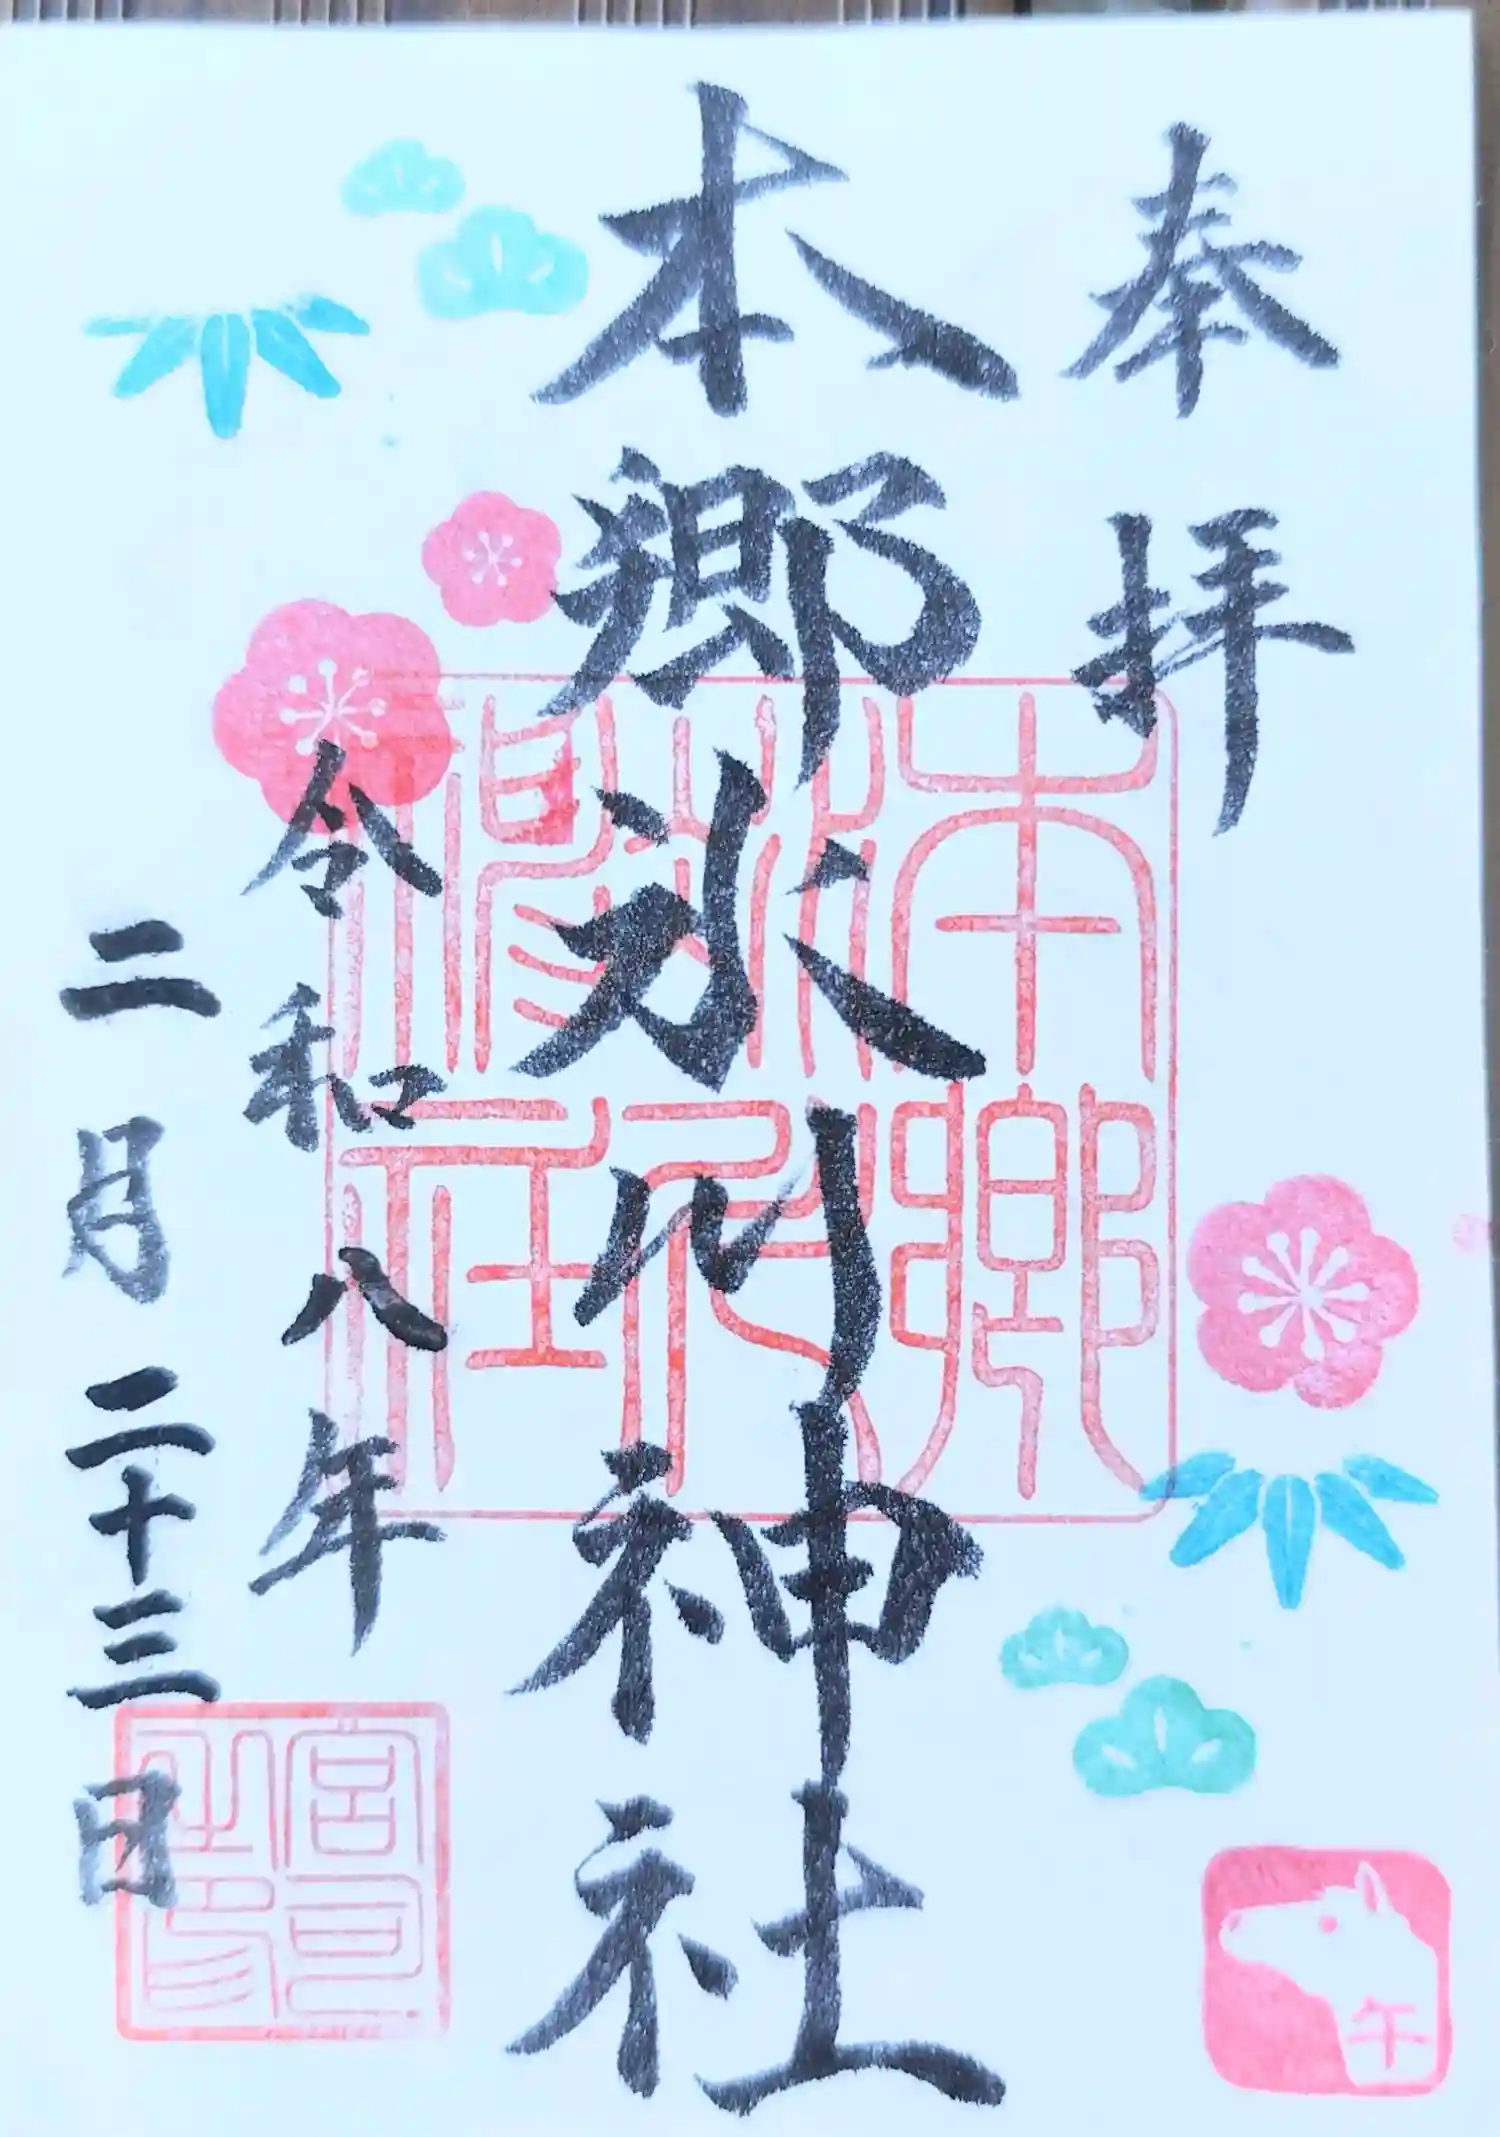 奉拝
本郷氷川神社
令和八年
二月二十三日
本郷
氷川
神社
宮司之印
午